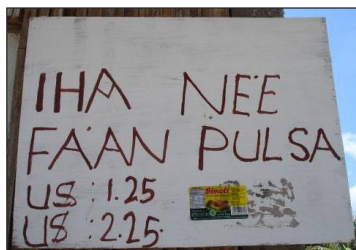 IHA NEE
FA'AN PULSA
US : 1.25
US : 2.25
Bimoli